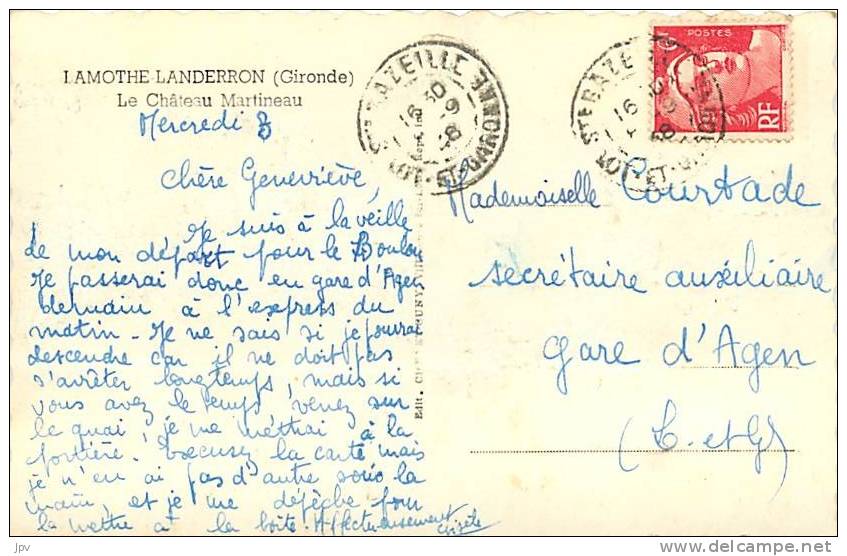 LAMOTHE-LANDERRON (Gironde)
Le Château Martineau
Mercredi 8
Chère Geneviève,
Je suis à la veille
de mon départ pour le Boulou
Je passerai donc en gare d'Agen
demain à l'express du
matin - Je ne sais si je pourrai
descendre car il ne doit pas
s'arrêter longtemps, mais si
vous avez le temps, venez sur
le quai, je me mettrai à la
portière. Excusez la carte mais
je n'en ai pas d'autre sous la
main, et je me dépêche pour
la mettre à la boîte. Affectueusement
Gisèle
Edit.
STE BAZEILLE
LOT-ET-GARONNE
16 30
STE BAZEILLE
LOT-ET-GARONNE
16 30
POSTES
RF
Mademoiselle Courtade
secrétaire auxiliaire
gare d'Agen
(L. et G)
jpv
www.delcampe.net